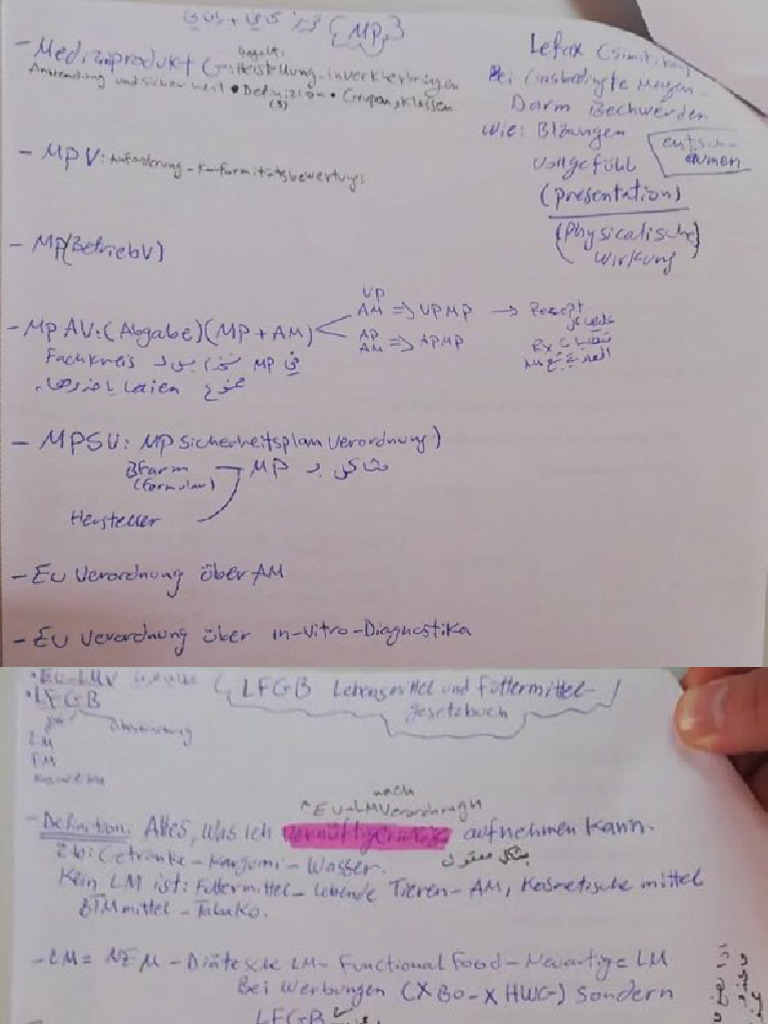 {MP}
- Medizinprodukt G: Herstellung - inverkehrbringen
Anwendung und sicherheit • Definizion • Grupen, klassen
(3)
Lefax (simitikon)
Bei Gasbedigte Magen
Darm Bechwerden
wie: Blönungen
vollgefühl
entschäumen
(presentation)
(physicalische
wirkung)
- MPV: Auforderung - Konformitätsbewertungs
- MP(BetriebV)
- MpAV: (Abgabe) (MP + AM)
VP
AM => VPMP → Rezept
AP
AM => APMP
Rx
Fachkreis MP في
Laien ممنوع
- MPSV: MP Sicherheitsplan verordnung)
BFarm MP مشاكل بـ
(Formular)
Hersteller
- EU Verordnung über AM
- EU Verordnung über in-vitro-Diagnostika
• EU-LMV
• LFGB
(LFGB Lebensmittel und Futtermittel-
gesetzbuch)
Überwachung
LM
FM
nach
EU-LMVerordnung
- Definition: Alles, was ich vernüftigerweise aufnehmen kann.
بشكل معقول
z.b: Getränke - Kaugumi - Wasser.
Kein LM ist: Futtermittel - lebende Tieren - AM, Kosmetische mittel
BTMmittel - Tabako.
- LM = NEM - Diätesche LM - Functional Food - Neuartige LM
Bei Werbungen (X Bo - X HWG) sondern
LFGB